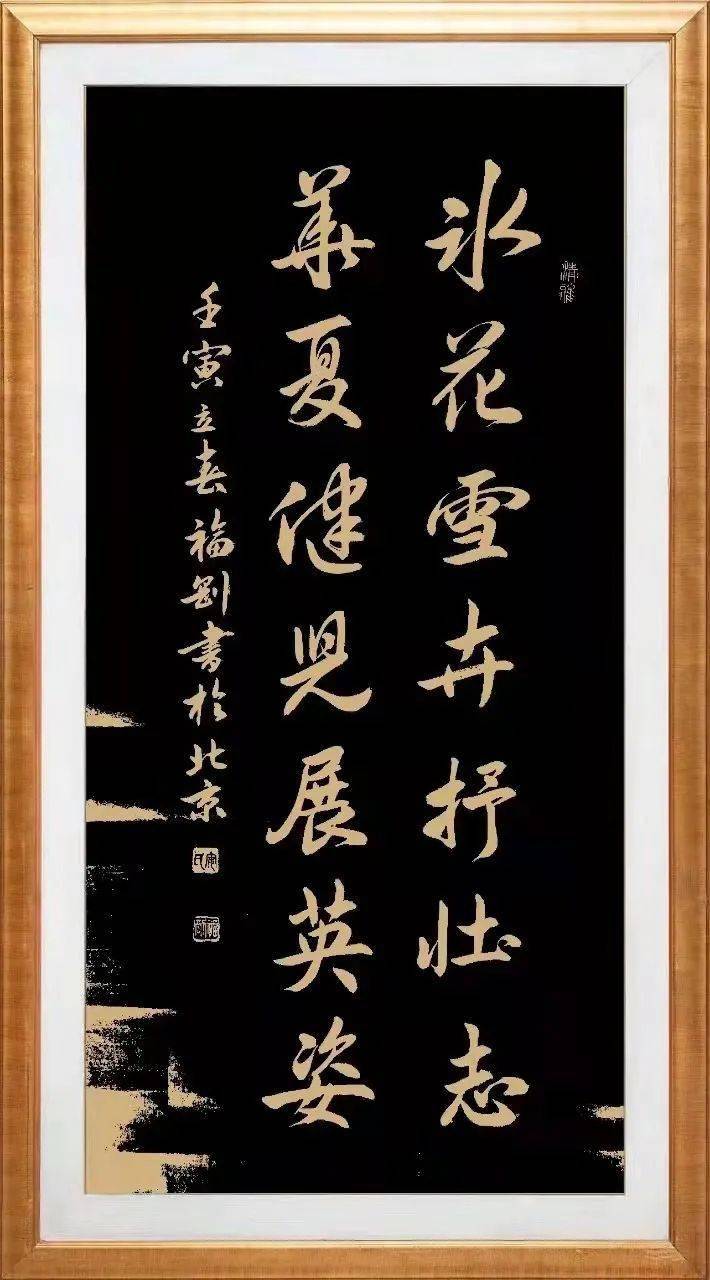 冰花雪卉抒壮志
華夏健児展英姿
壬寅立春福刚書於北京